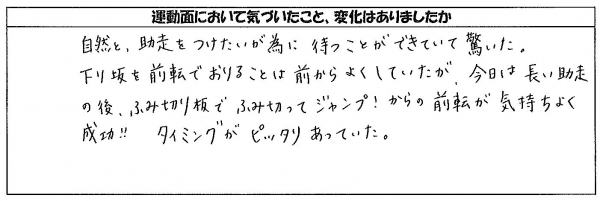 運動面において気づいたこと、変化はありましたか
自然と、助走をつけたいが為に 待つことができていて 驚いた。
下り坂を前転でおりることは 前からよくしていたが、今日は 長い助走
の後、ふみ切り板で ふみ切って ジャンプ！からの 前転が 気持ちよく
成功!! タイミングが ピッタリ あっていた。